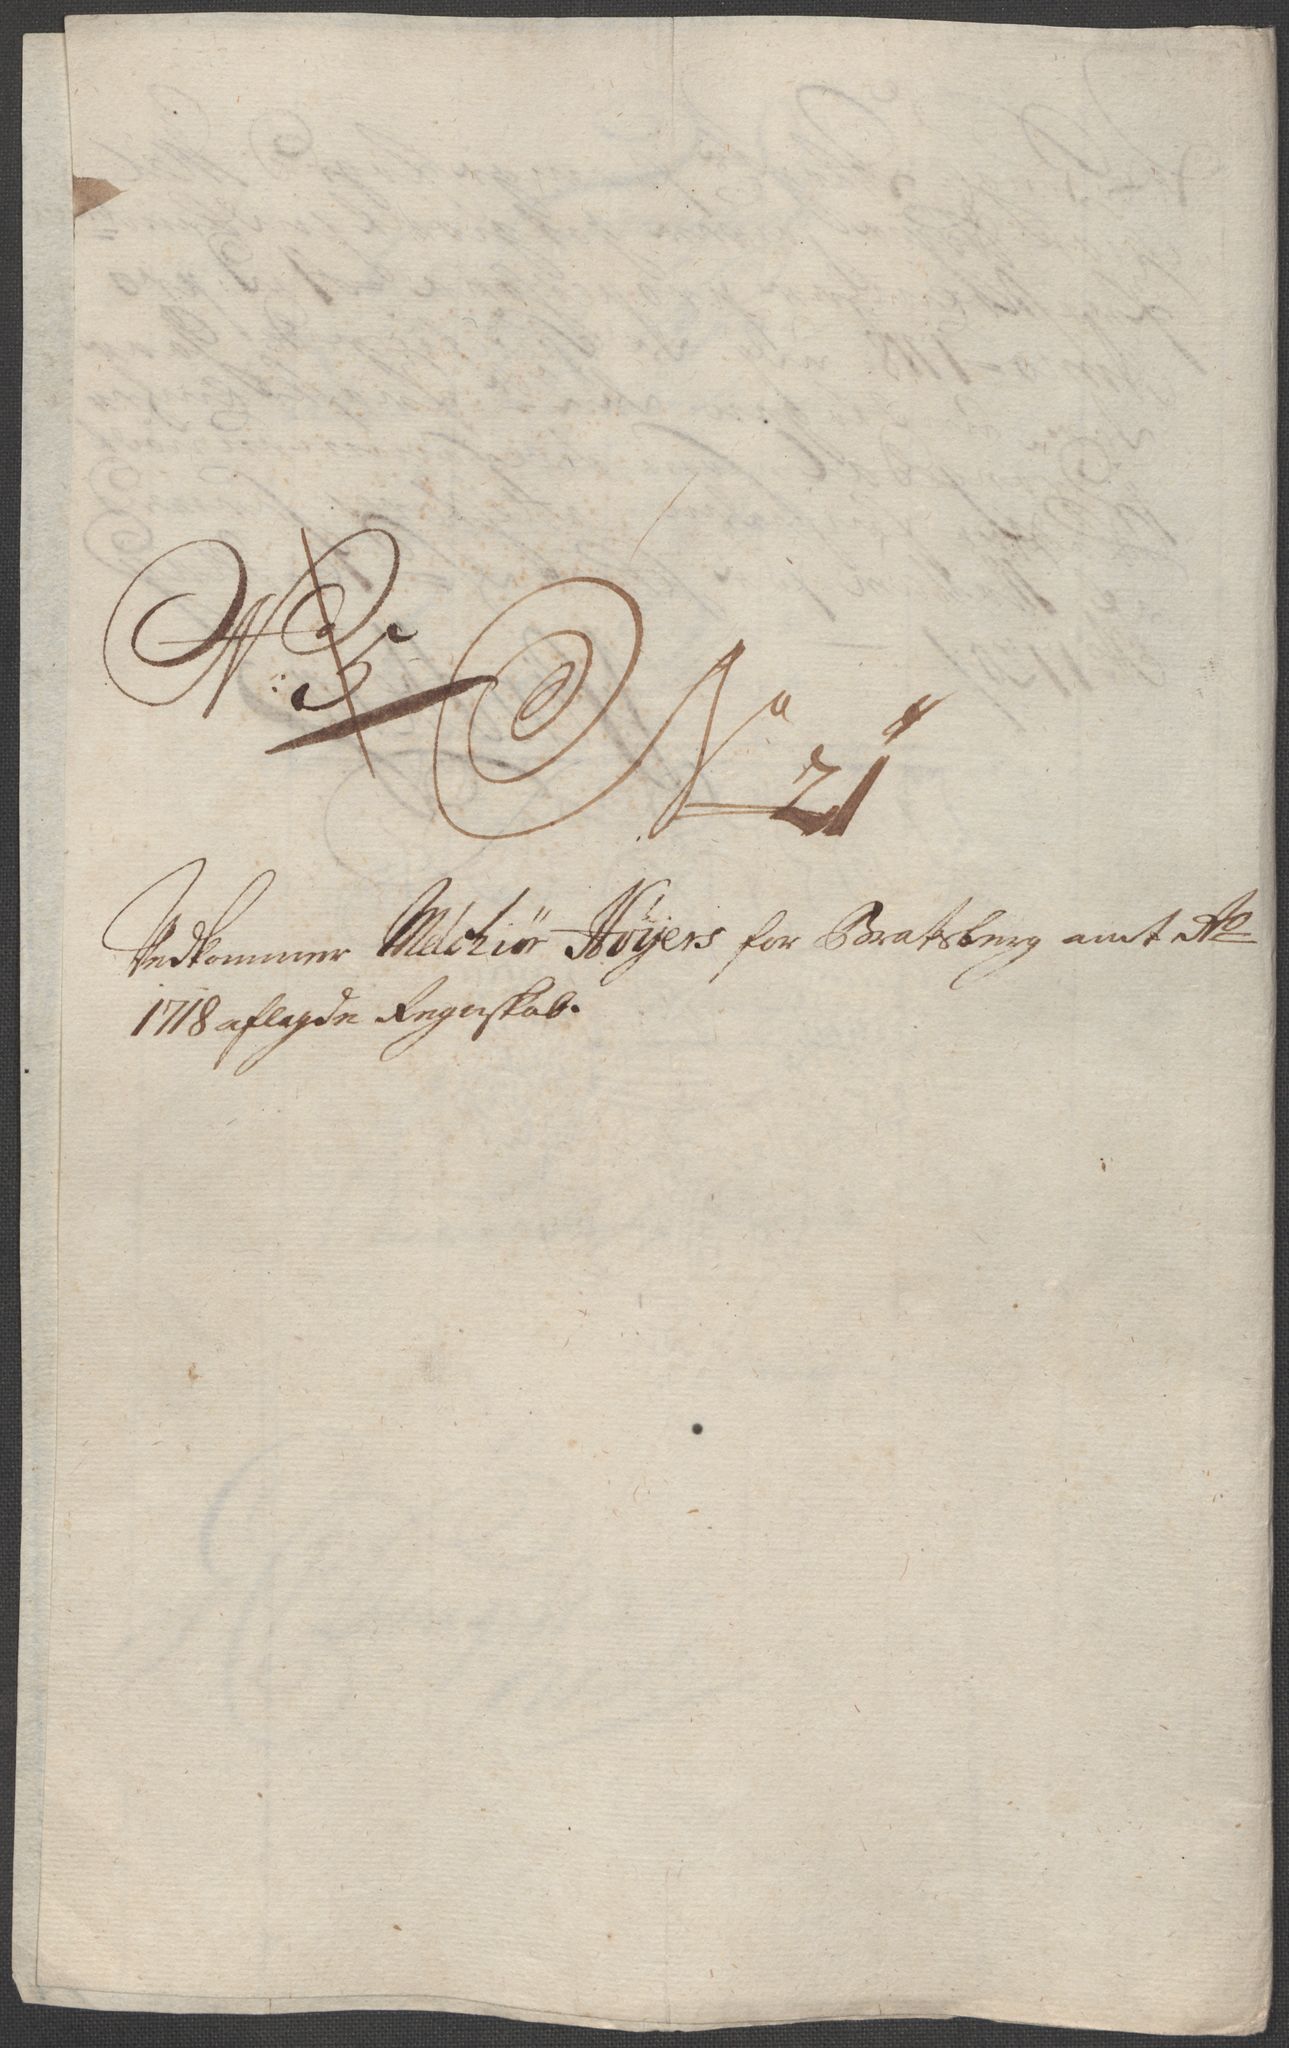 N: 5
Na 21
Vedkommer Melchiör Höyers for Bratsberg amt Ao
1718 aflagde Regenskab.